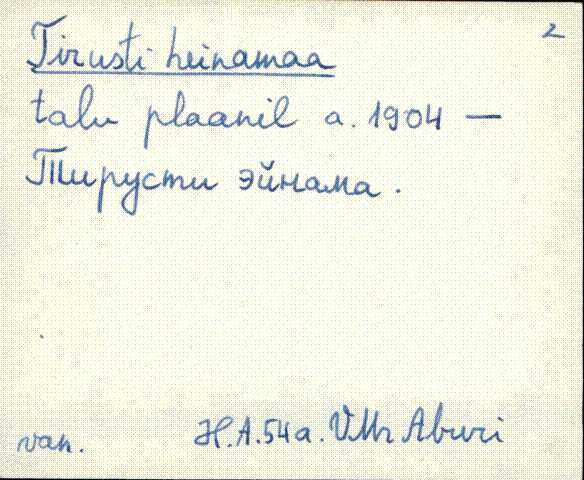 2
Tirusti heinamaa
talu plaanil a. 1904 —
Тирусти эйнама.
van. H.A.54a. VMr Aburi